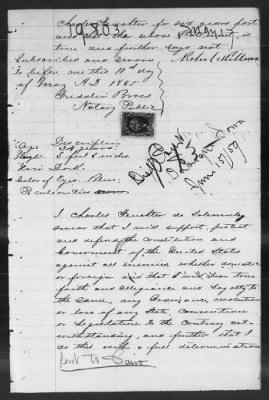 19803
Charles Feuchter for six years past
and that the above
is
true and further says not
Subscribed and sworn
to before me this 10th day
of June A.D. 1865.
Notary Public
Description
Age
Height 5 feet 8 inches
Hair Dark.
Color of Eyes. Blue.
Peculiarities none
June 15/59
I Charles Feuchter do Solemnly
swear that I will support, protect
and defend the Constitution and
Government of the United States
against all enemies whether domestic
or foreign and that I will bear true
faith and allegiance and loyalty to
the same, any Ordinance, resolution
or law of any State, Convention
or Legislature to the Contrary not-
withstanding, and further that I
do this with a full determination
Sent to Cairo